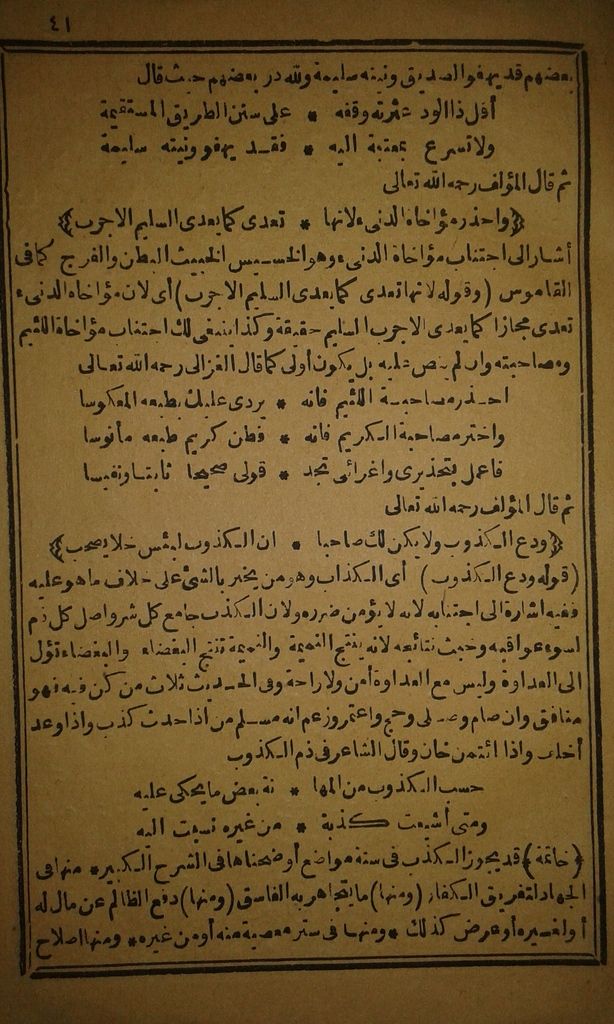 ٤١
بعضهم قد يهفو الصديق ونيته سليمة ولله در بعضهم حيث قال
أقل ذا الود عثرته وقفه * على سنن الطريق المستقيمة
ولا تسرع بمعتبة اليه * فقد يهفو ونيته سليمة
ثم قال المؤلف رحمه الله تعالى
﴿واحذر مؤاخاة الدنىء لانها * تعدى كما يعدى السليم الاجرب﴾
أشار الى اجتناب مؤاخاة الدنىء وهو الخسيس الخبيث البطن والفرج كما فى
القاموس (وقوله لانها تعدى كما يعدى السليم الاجرب) أى لان مؤاخاة الدنىء
تعدى مجازا كما يعدى الاجرب السليم حقيقة وكذا ينبغى لك اجتناب مؤاخاة اللئيم
ومصاحبته وان لم ينص عليه بل يكون أولى كما قال الغزالى رحمه الله تعالى
احذر مصاحبة اللئيم فانه * يردى عليك بطبعه المعكوسا
واختر مصاحبة الكريم فانه * فطن كريم طبعه مأنوسا
فاعمل بتحذيرى واغرائى تجد * قولى صحيحا ثابتا ونفيسا
ثم قال المؤلف رحمه الله تعالى
﴿ودع الكذوب ولا يكن لك صاحبا * ان الكذوب لبئس خلا يصحب﴾
(قوله ودع الكذوب) أى الكذاب وهو من يخبر بالشئ على خلاف ما هو عليه
ففيه اشارة الى اجتنابه لانه لا يؤمن ضرره ولان الكذب جامع كل شر واصل كل ذم
لسوء عواقبه وخبث نتائجه لانه ينتج النميمة والنميمة تنتج البغضاء والبغضاء تؤل
الى العداوة وليس مع العداوة أمن ولا راحة وفى الحديث ثلاث من كن فيه فهو
منافق وان صام وصلى وحج واعتمر وزعم انه مسلم من اذا حدث كذب واذا وعد
أخلف واذا ائتمن خان وقال الشاعر فى ذم الكذوب
حسب الكذوب من المها * نة بعض ما يحكى عليه
ومتى أشيعت كذبة * من غيره نسبت اليه
﴿خاتمة﴾ قد يجوز الكذب فى ستة مواضع أوضحناها فى الشرح الكبير * منها فى
الجهاد لتفريق الكفار (ومنها) ما يتجاهر به الفاسق (ومنها) دفع الظالم عن مال له
أو لغيره أو عرض كذلك * ومنها فى ستر معصية منه أو من غيره * ومنها اصلاح